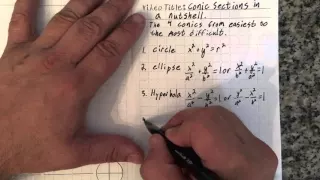 Video Title: Conic Sections in
a nutshell.
The 4 conics from easiest to
the most difficult.
1. circle x² + y² = r²
2. ellipse x²/a² + y²/b² = 1 or y²/a² + x²/b² = 1
3. Hyperbola x²/a² - y²/b² = 1 or y²/a² - x²/b² = 1